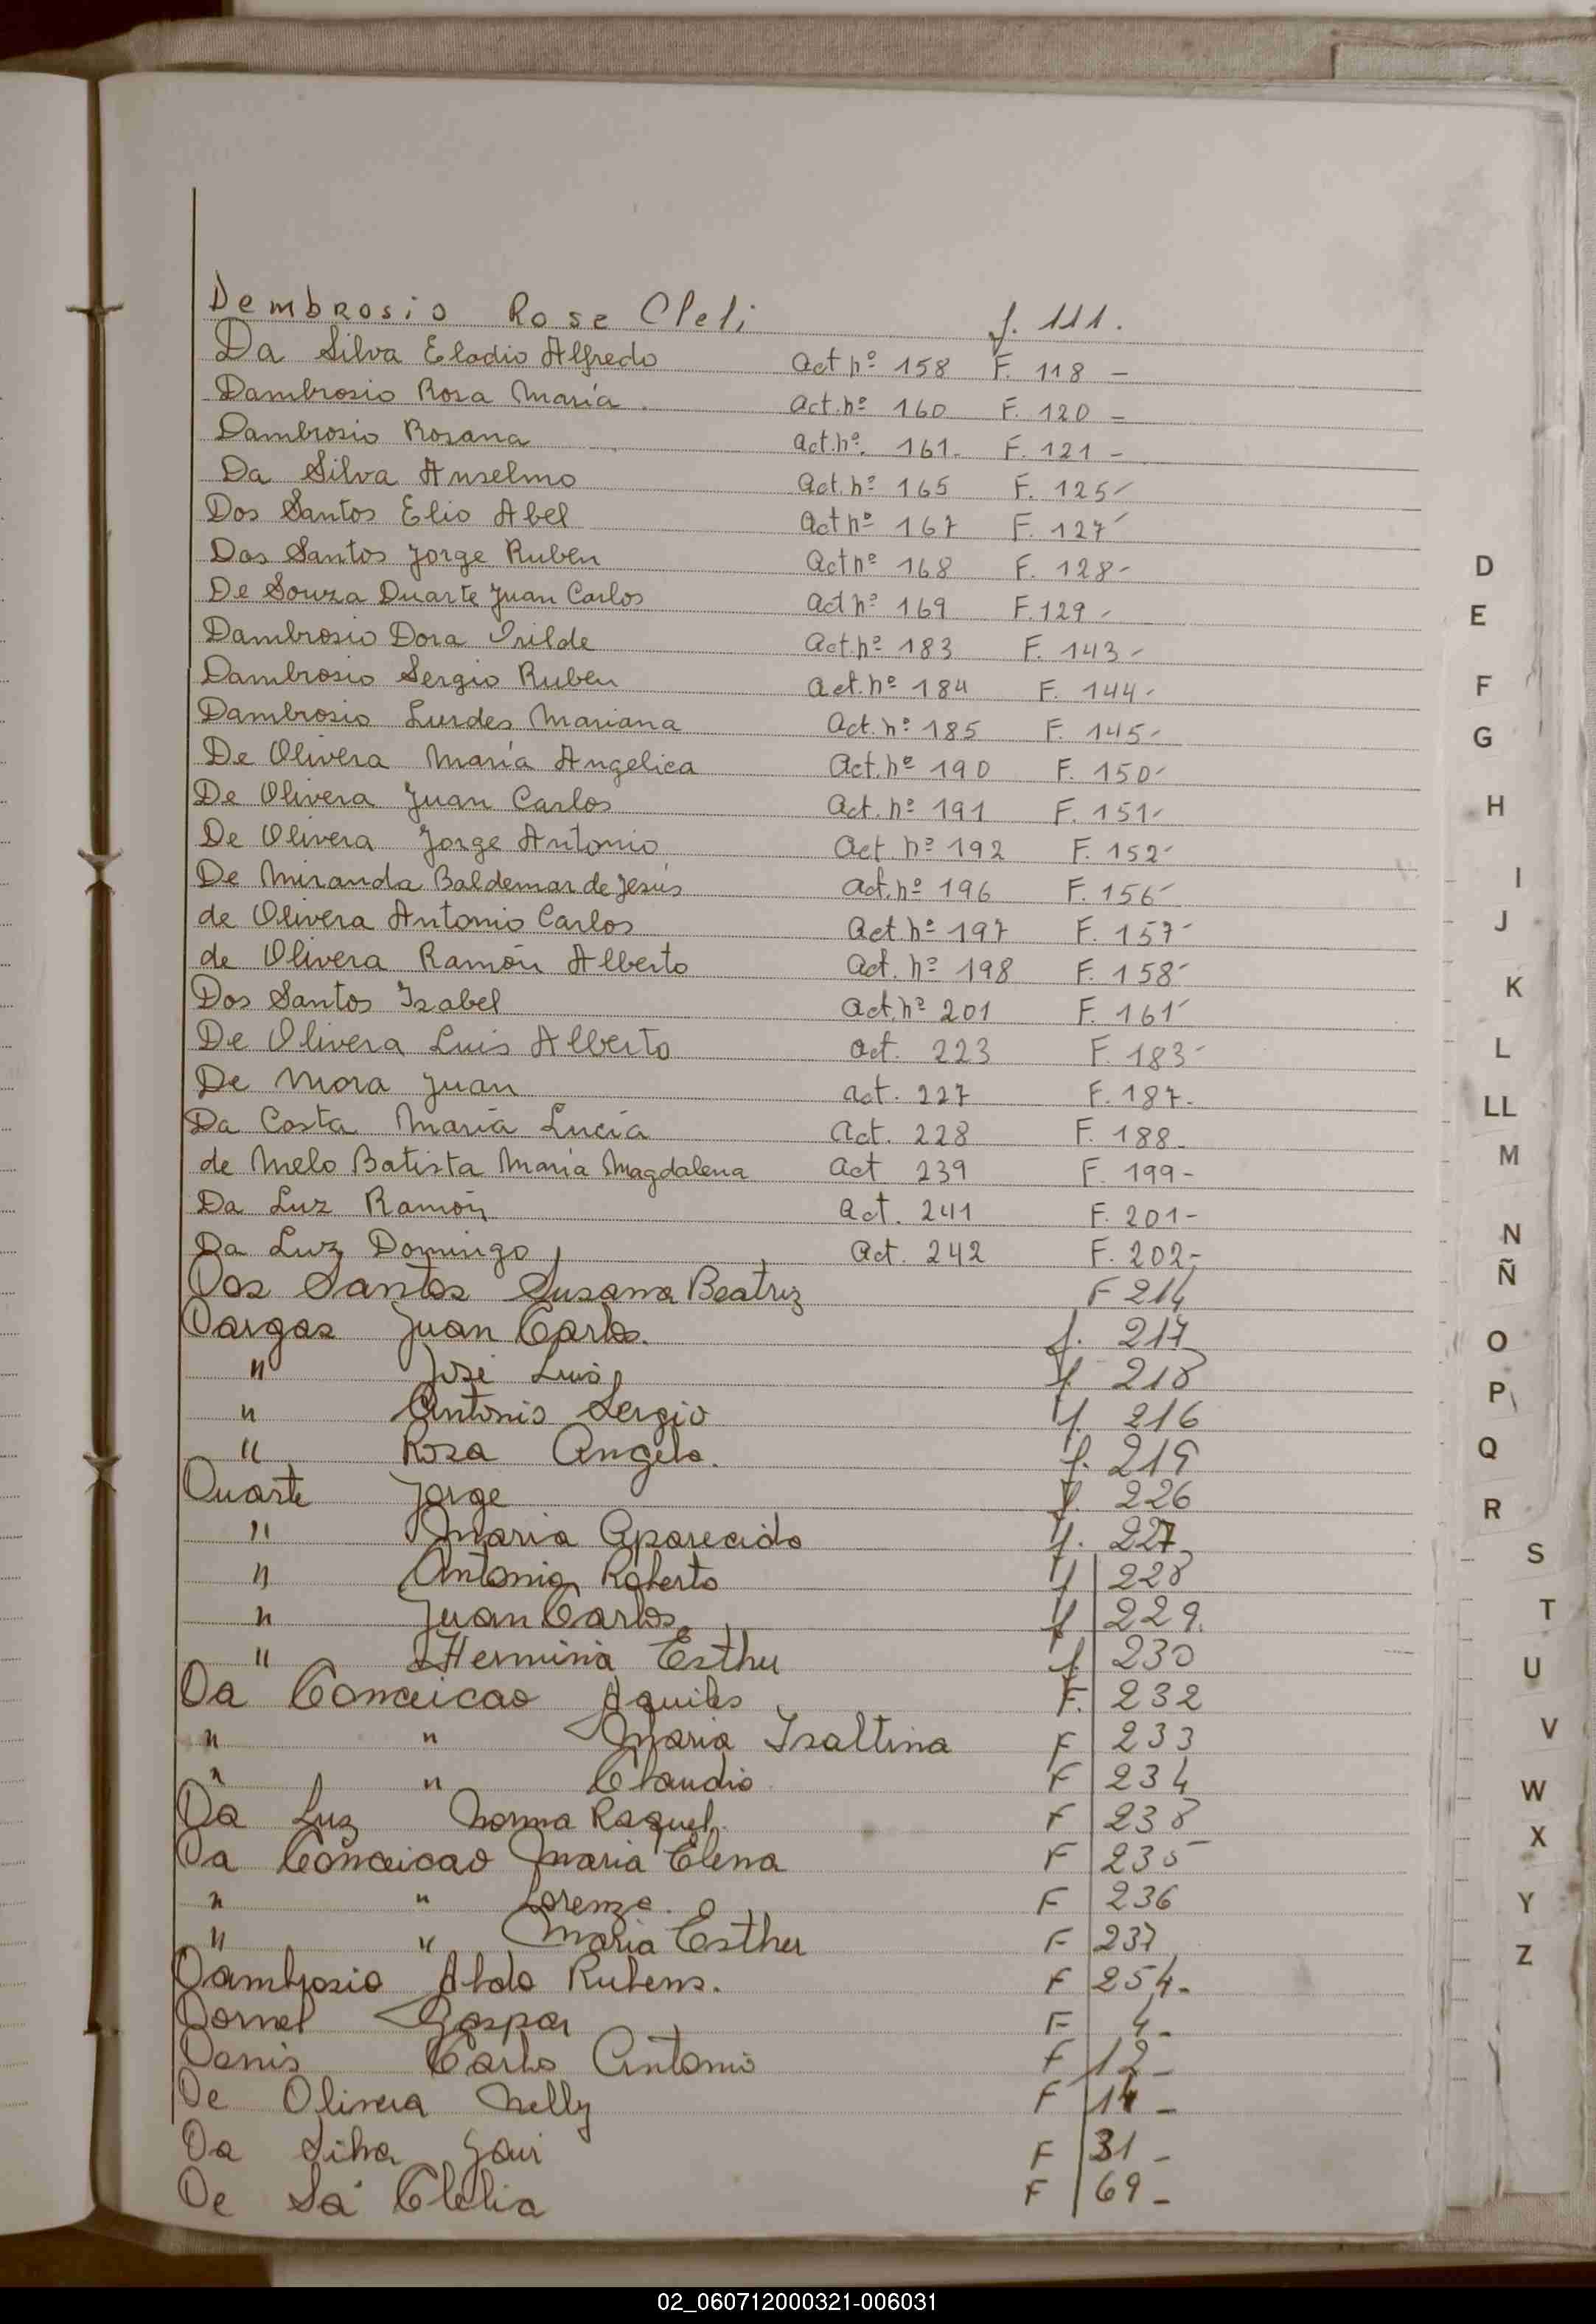 Dembrosio Rose Cleli f. 111.
Da Silva Eladio Alfredo Act nº 158 F. 118 -
Dambrosio Rosa María. Act. nº 160 F. 120 -
Dambrosio Rosana Act. nº. 161. F. 121 -
Da Silva Anselmo Act. nº 165 F. 125 -
Dos Santos Elio Abel Act nº 167 F. 127 -
Dos Santos Jorge Ruben Act nº 168 F. 128 -
De Souza Duarte Juan Carlos Act nº 169 F. 129 -
Dambrosio Dora Irilde Act. nº 183 F. 143 -
Dambrosio Sergio Ruben Act. nº 184 F. 144 -
Dambrosio Lurdes Mariana Act. nº 185 F. 145 -
De Olivera María Angelica Act. nº 190 F. 150 -
De Olivera Juan Carlos Act. nº 191 F. 151 -
De Olivera Jorge Antonio Act. nº 192 F. 152 -
De Miranda Baldemar de Jesús Act. nº 196 F. 156 -
de Olivera Antonio Carlos Act. nº 197 F. 157 -
de Olivera Ramón Alberto Act. nº 198 F. 158 -
Dos Santos Isabel Act. nº 201 F. 161 -
De Olivera Luis Alberto Act. 223 F. 183 -
De Mora Juan Act. 227 F. 187 -
Da Costa María Lucía Act. 228 F. 188 -
de Melo Batista María Magdalena Act 239 F. 199 -
Da Luz Ramón Act. 241 F. 201 -
Da Luz Domingo Act. 242 F. 202 -
Dos Santos Susana Beatriz F 214
Dargas Juan Carlos. f. 217
" José Luis f 218
" Antonio Sergio f. 216
" Rosa Angela. f. 219
Duarte Jorge f. 226
" Maria Aparecida f. 227
" Antonio Roberto f 228
" Juan Carlos f 229.
" Herminia Esther f 230
Da Conceicao Aquiles F. 232
" " Maria Isaltina F 233
" " Claudio F 234
Da Luz Norma Raquel. F 238
Da Conceicao Maria Elena F 235
" " Lorenzo. F 236
" " Maria Esther F 237
Dambrosio Aldo Rubens. F 254 -
Dornel Gaspar F 4 -
Denis Carlos Antonio F 12 -
De Olivera Nelly F 14 -
Da Silva Jair F 31 -
De Sá Clelia F 69 -
D
E
F
G
H
I
J
K
L
LL
M
N
Ñ
O
P
Q
R
S
T
U
V
W
X
Y
Z
02_060712000321-006031